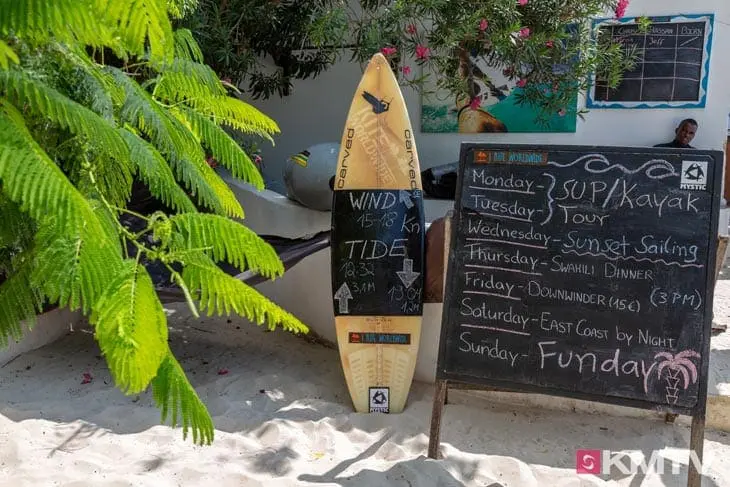 carved
WIND
15-18 kn
TIDE
12:32
3.1M
RIDE WORLDWIDE
MYSTIC
RIDE WORLDWIDE
MYSTIC
Monday-
Tuesday-
SUP/Kayak
Tour
Wednesday-Sunset Sailing
Thursday-Swahili Dinner
Friday-Downwinder (15€) (3 PM)
Saturday-East Coast by Night
Sunday-Funday
Jeff
KMTV